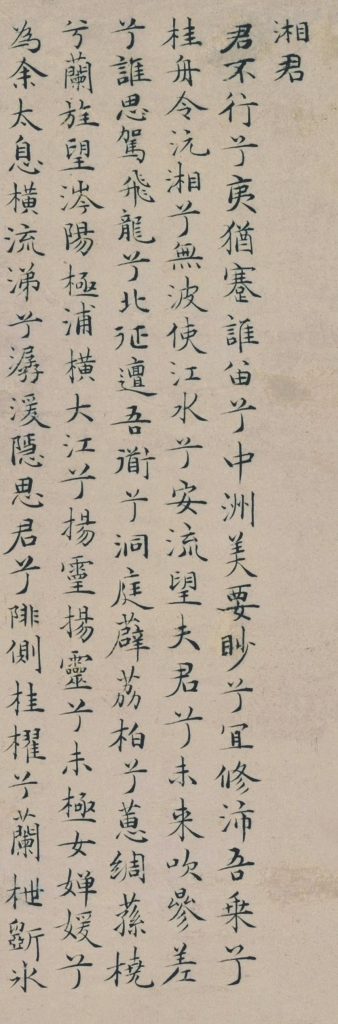 湘君
君不行兮夷猶蹇誰留兮中洲美要眇兮宜修沛吾乗兮
桂舟令沅湘兮無波使江水兮安流望夫君兮未来吹參差
兮誰思駕飛龍兮北征邅吾衟兮洞庭薜荔柏兮蕙綢蓀橈
兮蘭旌望涔陽極浦橫大江兮揚靈揚靈兮未極女嬋媛兮
為余太息橫流涕兮潺湲隱思君兮陫側桂櫂兮蘭枻斲氷